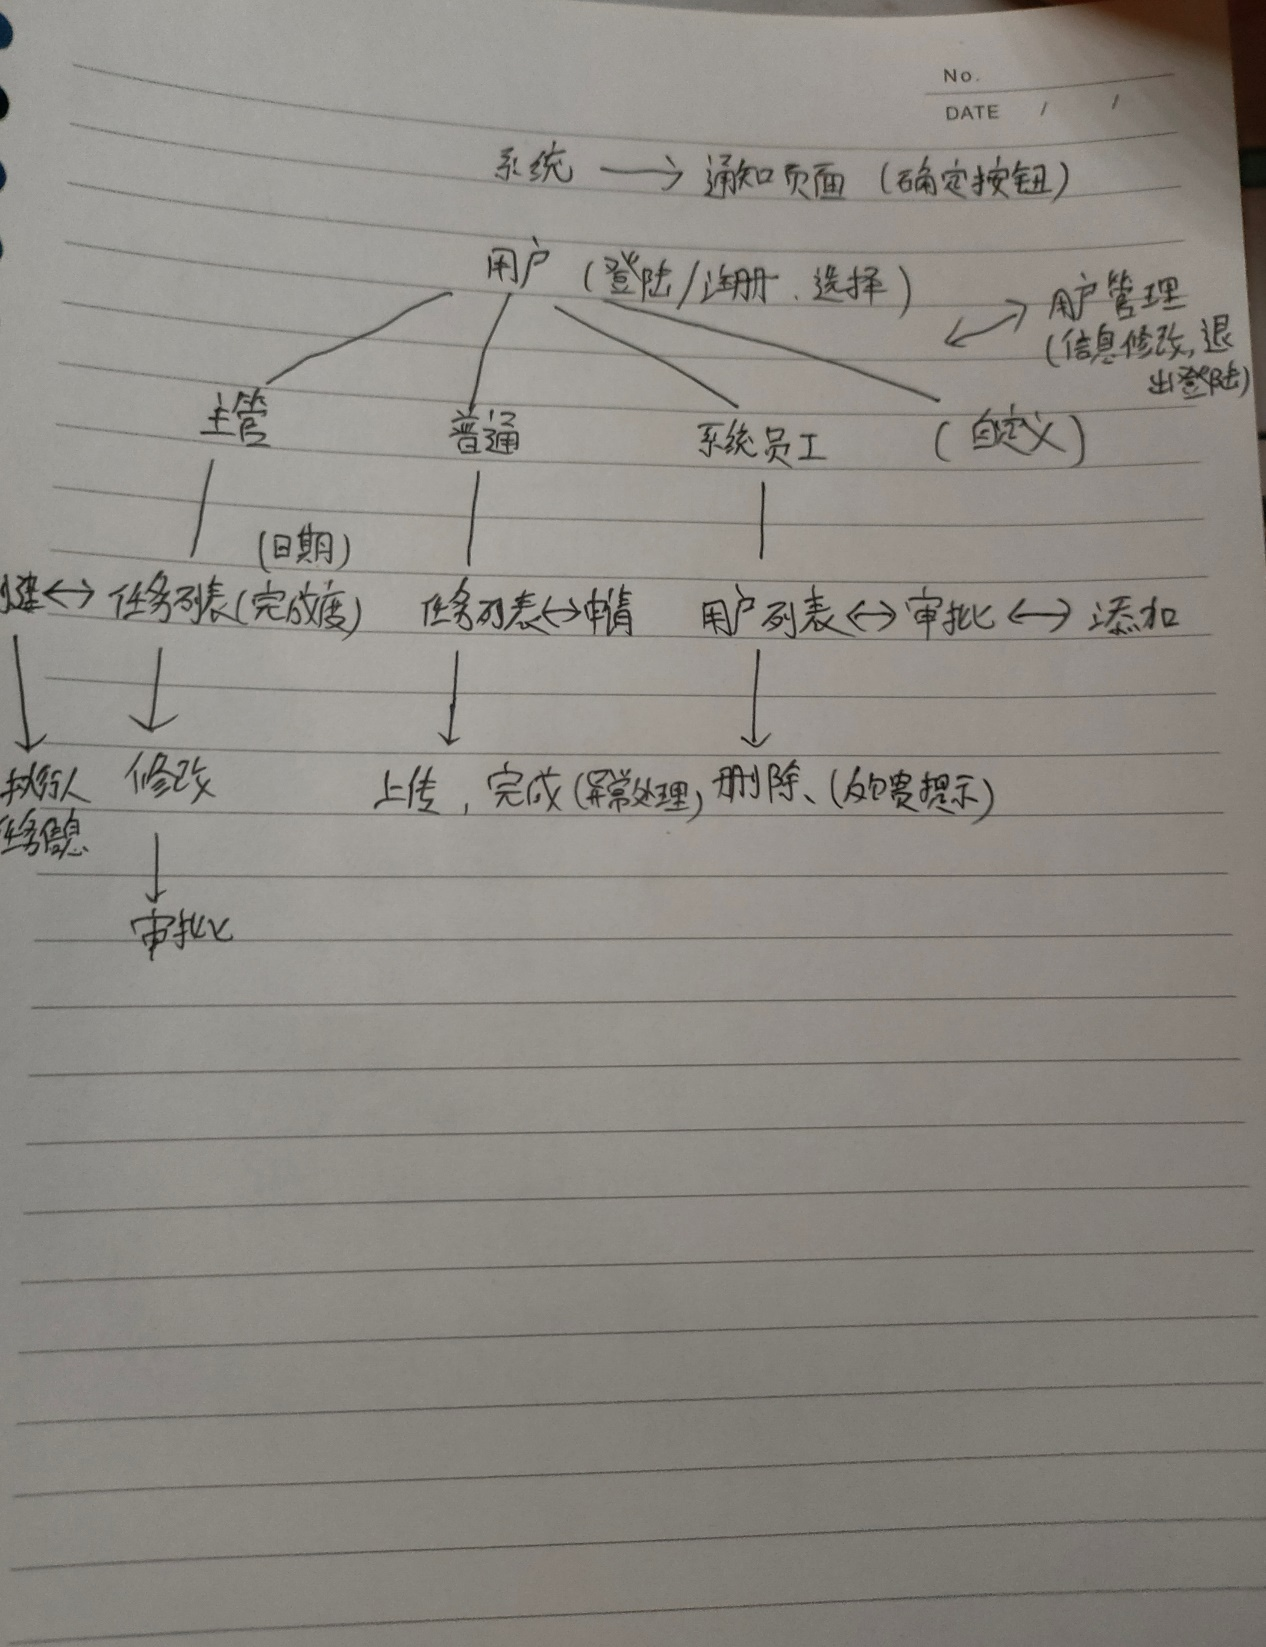 No.
DATE / /
系统 → 通知页面 (确定按钮)
用户 (登陆/注册、选择)
用户管理
(信息修改,退
出登陆)
主管 普通 系统员工 (自定义)
(日期)
建 ↔ 任务列表(完成度) 任务列表 ↔ 申请 用户列表 ↔ 审批 ↔ 添加
执行人 修改 上传, 完成(异常处理) 删除、(反馈提示)
任务信息
审批